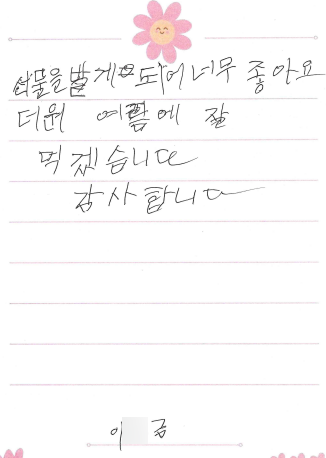 선물을 받게 되어 너무 좋아요
더위 여름에 잘
먹겠습니다
감사합니다
이 금